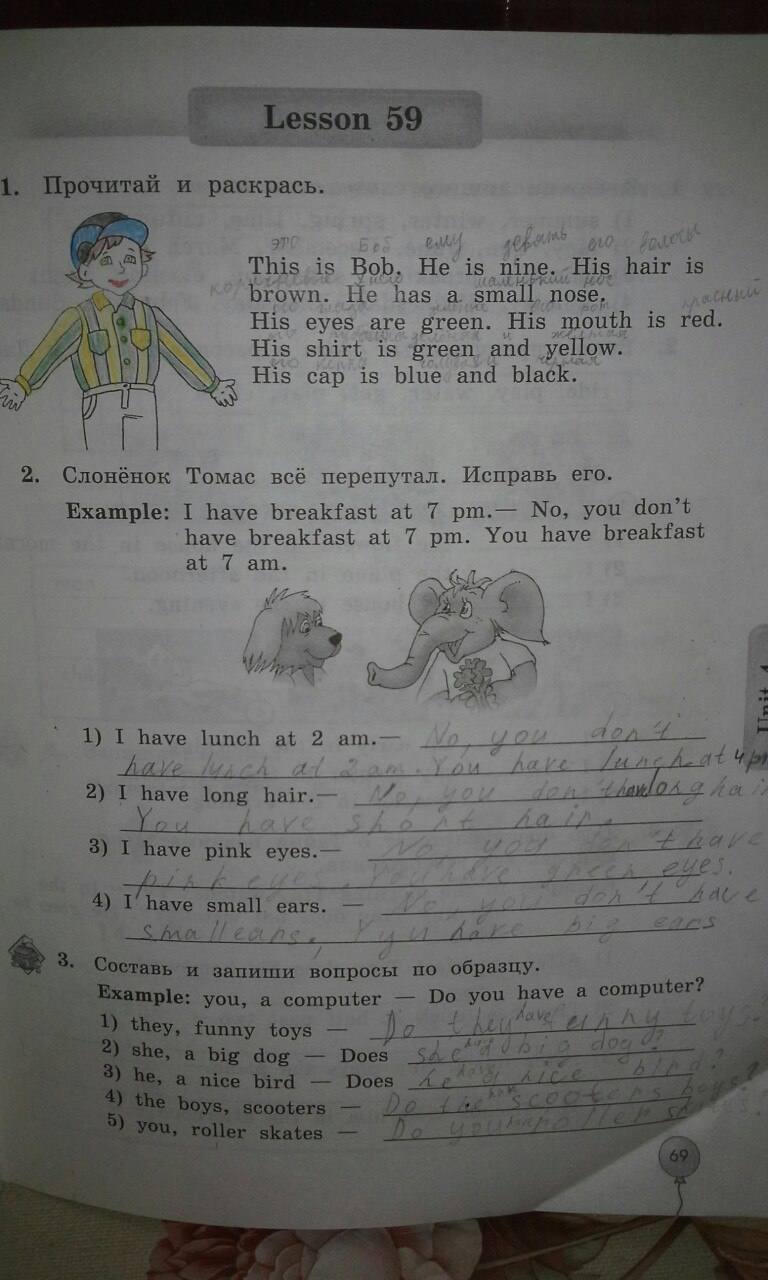 Lesson 59
1. Прочитай и раскрась.
это Боб ему девять его волосы
This is Bob. He is nine. His hair is
маленький нос
brown. He has a small nose.
рот красный
His eyes are green. His mouth is red.
и
His shirt is green and yellow.
His cap is blue and black.
2. Слонёнок Томас всё перепутал. Исправь его.
Example: I have breakfast at 7 pm.— No, you don't
have breakfast at 7 pm. You have breakfast
at 7 am.
1) I have lunch at 2 am.— No, you don't
have lunch at 2 am. You have lunch at 4 pm
2) I have long hair.— No, you don't have long hair
You have short hair.
3) I have pink eyes.— No you don't have
pink eyes. You have green eyes.
4) I have small ears. — No, you don't have
small ears. You have big ears
3. Составь и запиши вопросы по образцу.
Example: you, a computer — Do you have a computer?
1) they, funny toys — Do they have funny toys?
2) she, a big dog — Does she have a big dog?
3) he, a nice bird — Does he have a nice bird?
4) the boys, scooters — Do the have scooters boys?
5) you, roller skates — Do you have roller
69
Unit 4